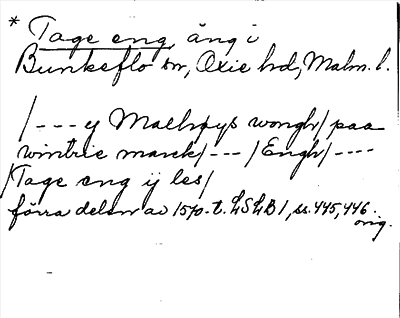 * Tage eng, äng i
Bunkeflo sn, Oxie hd, Malm. l.
/--- y Malhøys wongh/ paa
wintrie marck/--- /Engh/----
/Tage eng ij les/
förra delen av 1570-t. LSLB 1, ss. 445, 446.
orig.